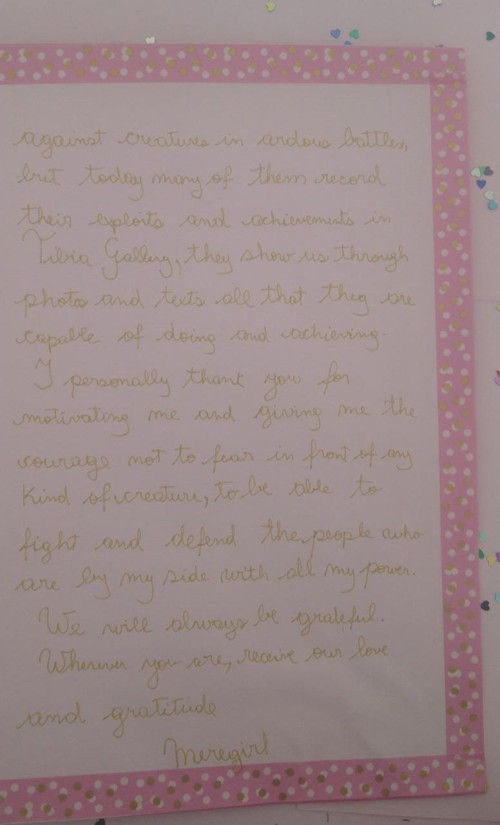 against creatures in ardous battles,
but today many of them record
their exploits and achievements in
Tibia Gallery, they show us through
photos and texts all that they are
capable of doing and achieving.
I personally thank you for
motivating me and giving me the
courage not to fear in front of any
kind of creature, to be able to
fight and defend the people who
are by my side with all my power.
We will always be grateful.
Wherever you are, receive our love
and gratitude
Meregirl